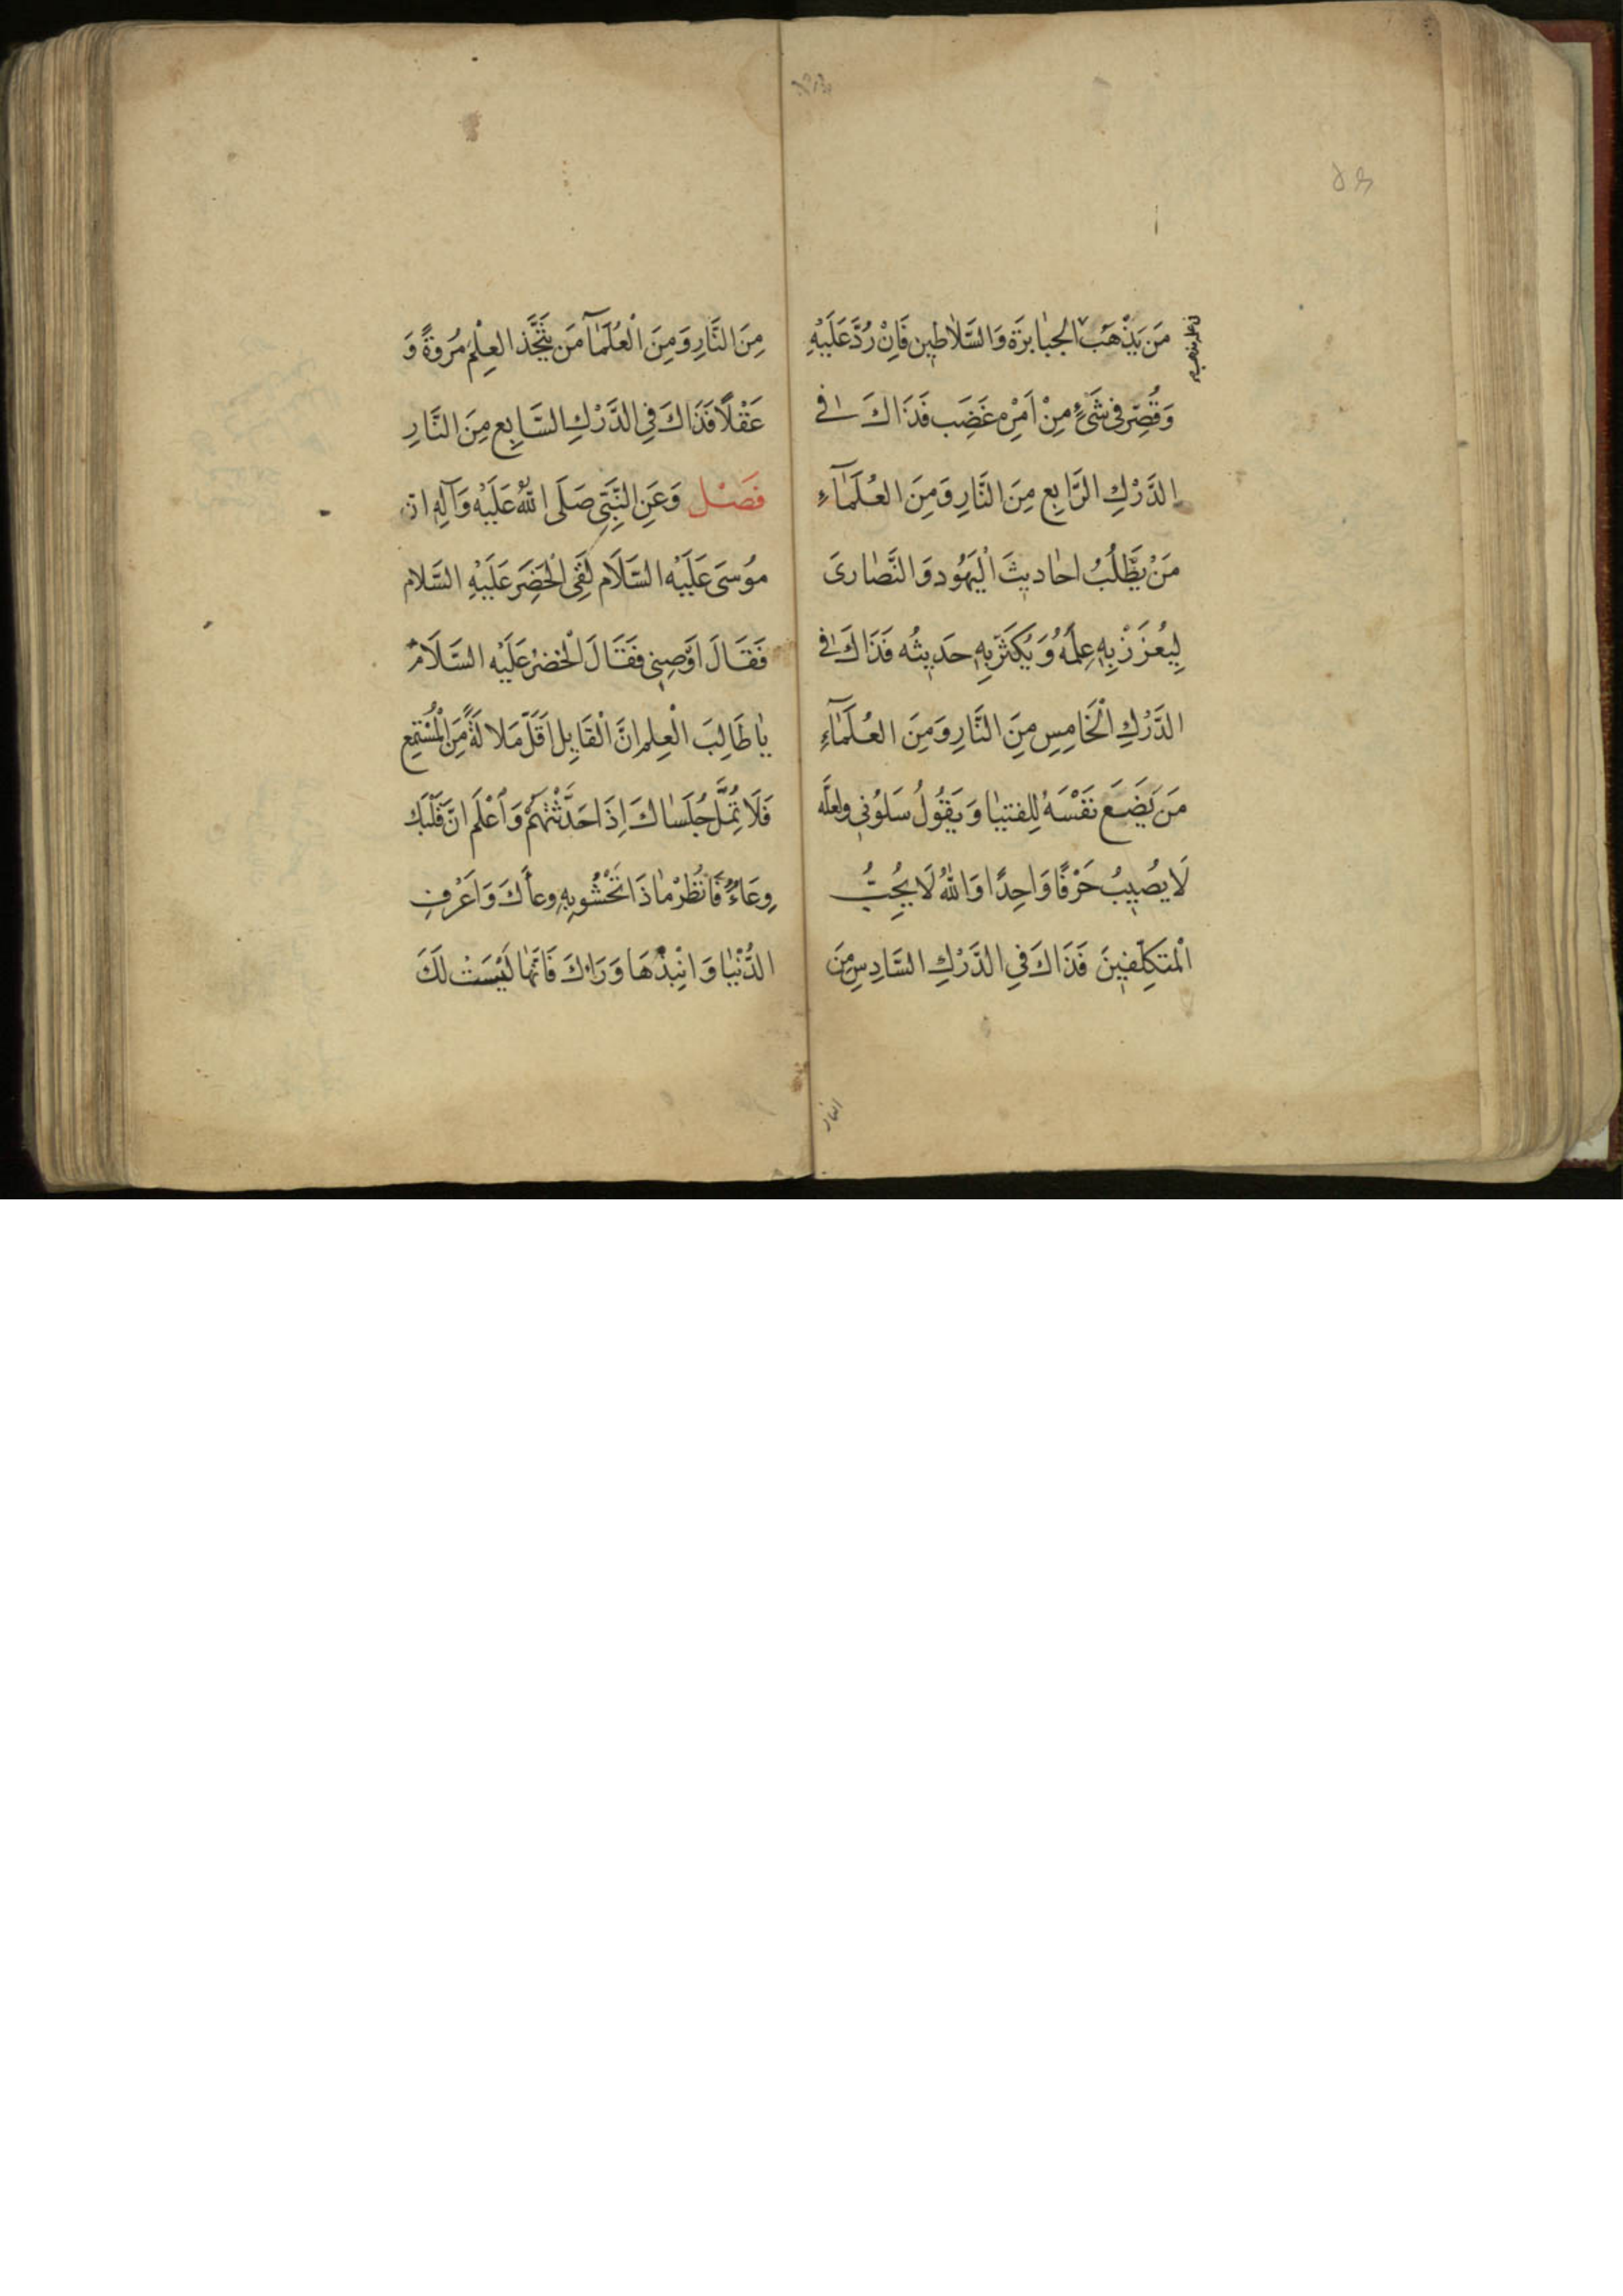 مَنْ يَذْهَبُ الجبٰابرَة وَالسَّلاٰطين فَاِنْ رُدَّ عَلَيْهِ
وَقُصِّر فى شَىْءٍ مِنْ اَمْرِه غَضِبَ فَذَاكَ فى
الدَّرْكِ الرَّابِعِ مِنَ النَّارِ وَمِنَ العُلَمٰآءِ
مَنْ يَطْلُبُ احٰاديثَ الْيَهُود وَالنَّصٰارىَ
لِيُعْزَزْ بِهِ عِلْمُهُ وَيُكْثَرَ بِهِ حَديثُه فَذَاكَ فى
الدَّرْكِ الْخَامِسِ مِنَ النَّارِ وَمِنَ العُلَمٰآءِ
مَنْ يَضَعُ نَفْسَهُ لِلفتيٰا وَيَقُولُ سَلوُنى ولعلَّه
لَا يُصيبُ حَرْفًا وَاحِدًا وَاللهُ لَا يُحِبُّ
الْمتَكَلِّفينَ فَذَاكَ فِى الدَّرْكِ السَّادِسِ مِنَ
النار
مِنَ النَّارِ وَمِنَ الْعُلَمٰآ مَن يَتَّخِذ العِلْمَ مُروةً وَ
عَقْلًا فَذَاكَ فِى الدَّرْكِ السَّابِع مِنَ النَّارِ
فَصْل وَعَنِ النَّبِىِّ صَلَى اللهُ عَلَيْهِ وَآلِهِ ان
موُسىَ عَلَيْهِ السَّلَام لَقِىَ الْخَضِرَ عَلَيْهِ السَّلام
فَقَالَ اَوْصِنى فَقَالَ الْخضرُ عَلَيْه السَّلَامُ
يٰا طَالِبَ الْعِلم انَّ الْقَايِل اَقَلّ مَلالَةً مِنَ الْمُسْتَمِع
فَلَا تُمِلَّ جُلَسٰاكَ اِذَا حَدَّثْتَهُمْ وَاَعْلَم انَّ قَلْبَك
وِعَاءٌ فَانْظُرْ مٰاذَا تَحْشُو بِهِ وِعاكَ وَاعْرِفِ
الدُّنْيٰا وَانْبِذْهَا وَرَاكَ فَانَّهٰا لَيْسَتْ لَكَ